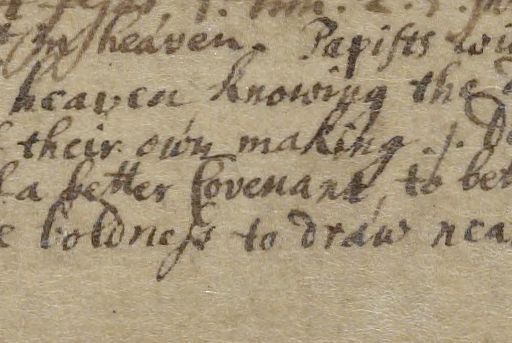 in heaven. Papists wi
heaven knowing the
their own making. J. D
a better Covenant, to bet
e boldness to draw near